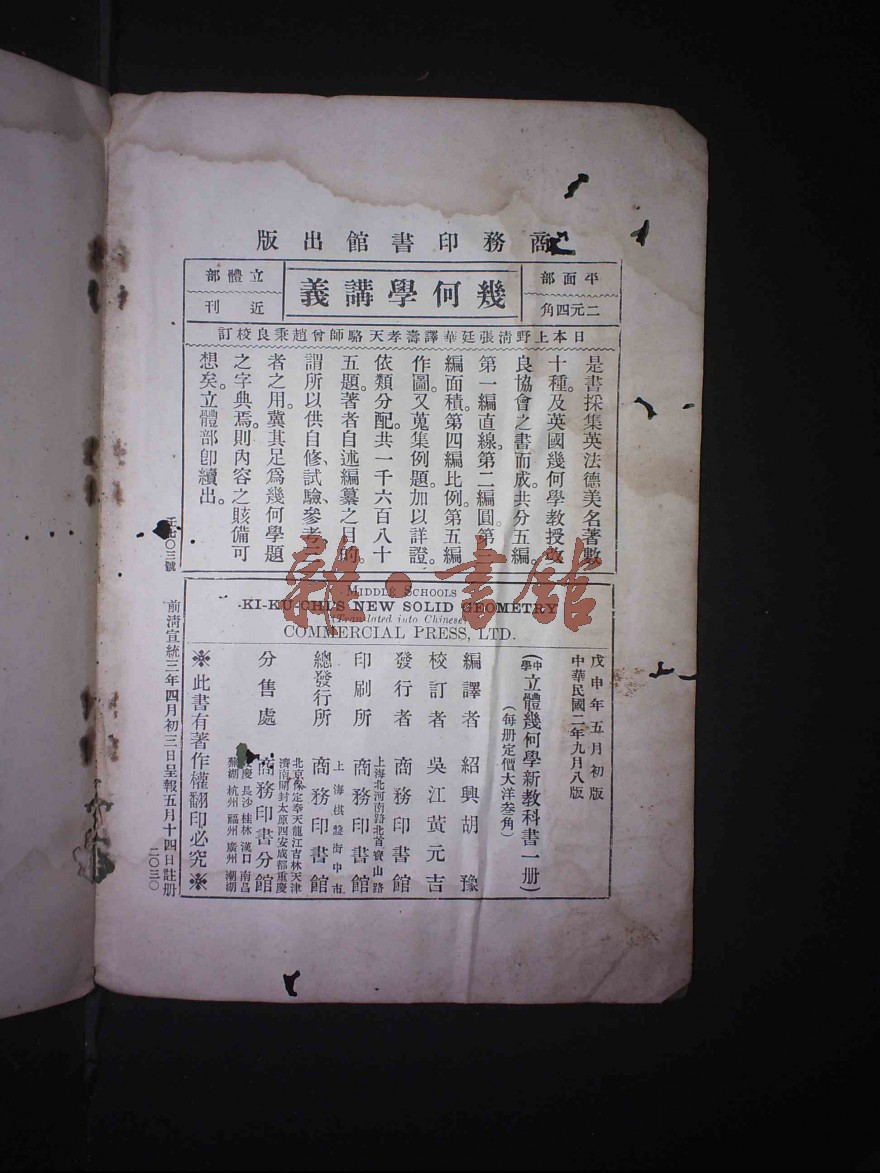 商務印書館出版
平面部
二元四角
幾何學講義
立體部
近刊
日本上野清張廷華譯壽孝天駱師曾趙秉良校訂
是書採集英法德美名著數
十種。及英國幾何學教授改
良協會之書而成。共分五編。
第一編直線。第二編圓。第三
編面積。第四編比例。第五編
作圖。又蒐集例題。加以詳證。
依類分配。共一千六百八十
五題。著者自述編纂之目的。
謂所以供自修、試驗、參考
者之用。冀其足爲幾何學題
之字典焉。則內容之賅備可
想矣。立體部卽續出。
MIDDLE SCHOOLS
KI-KU-CHI'S NEW SOLID GEOMETRY
(Translated into Chinese)
COMMERCIAL PRESS, LTD.
戊申年五月初版
中華民國二年九月八版
(中學)立體幾何學新教科書一册)
(每册定價大洋叁角)
編譯者 紹興胡豫
校訂者 吳江黃元吉
發行者 商務印書館
上海北河南路北首寶山路
印刷所 商務印書館
上海棋盤街中市
總發行所 商務印書館
北京保定奉天龍江吉林天津
濟南開封太原西安成都重慶
分售處 商務印書分館
慶長沙桂林漢口南昌
蕪湖杭州福州廣州潮
※此書有著作權翻印必究※
前清宣統三年四月初三日呈報五月十四日註册
二〇三〇
〇三號
雜·書館